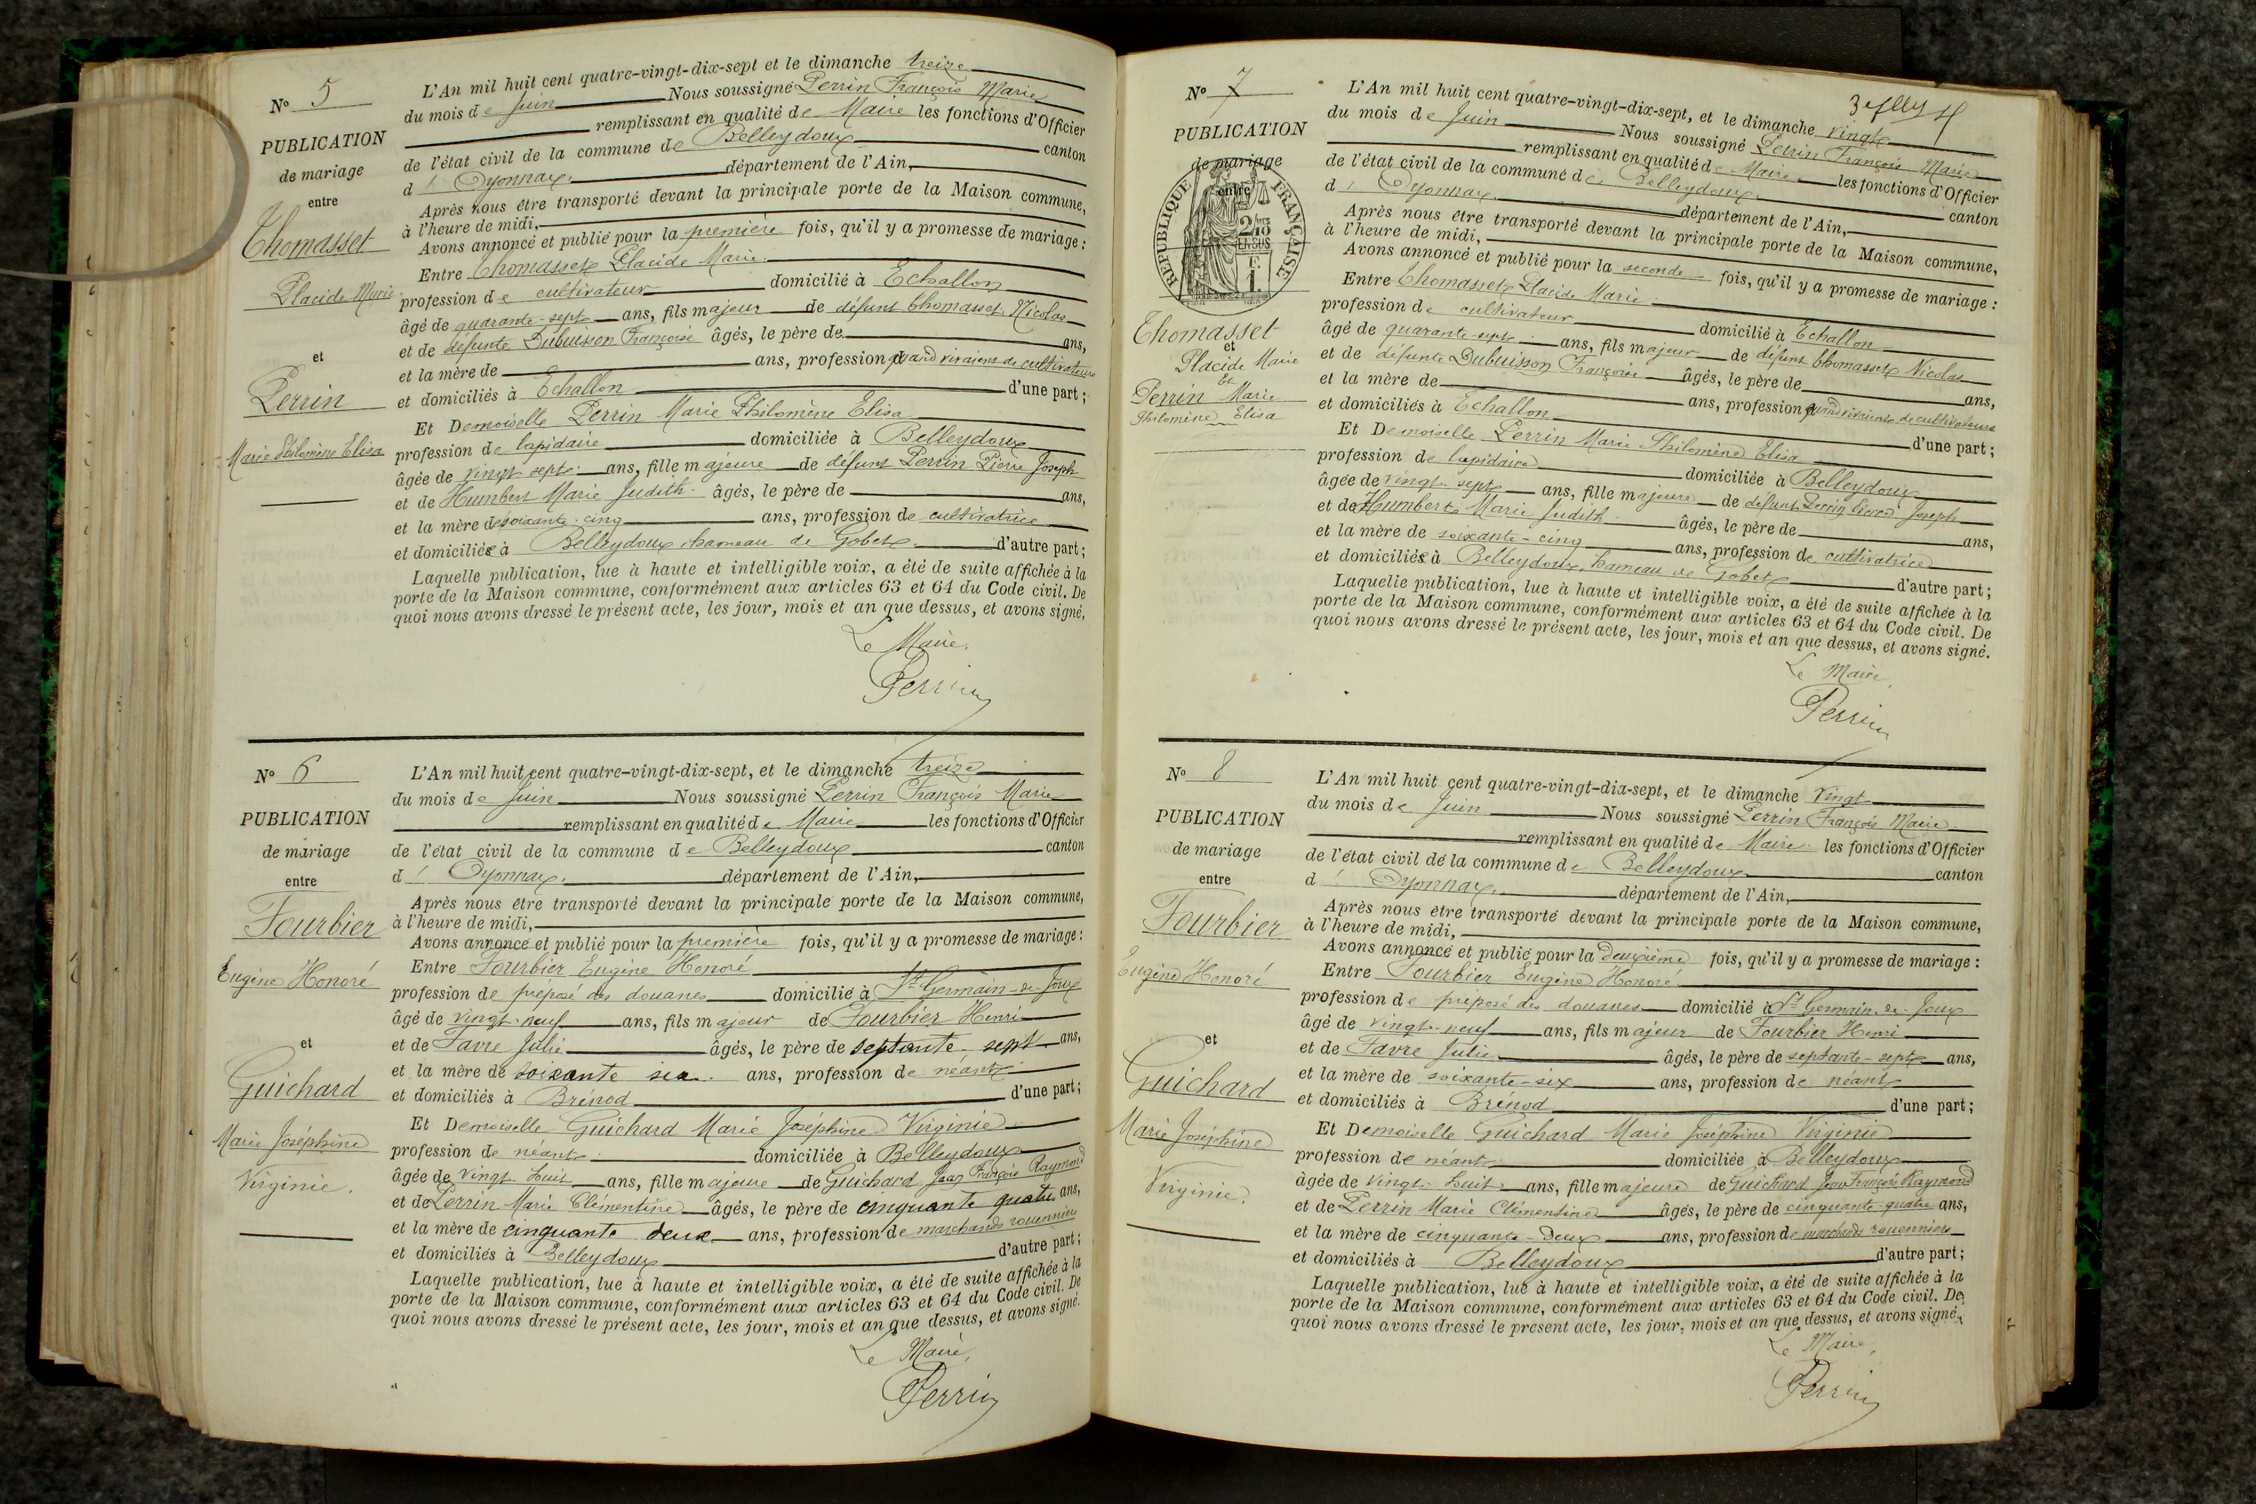 N° 5
PUBLICATION
de mariage
entre
Thomasset
Placide Marie
et
Perrin
Marie Philomène Elisa
L'An mil huit cent quatre-vingt-dix-sept et le dimanche treize
du mois de Juin Nous soussigné Perrin François Marie
remplissant en qualité de Maire les fonctions d'Officier
de l'état civil de la commune de Belleydoux canton
d' Oyonnax. département de l'Ain,
Après nous être transporté devant la principale porte de la Maison commune,
à l'heure de midi,
Avons annoncé et publié pour la première fois, qu'il y a promesse de mariage :
Entre Thomasset Placide Marie
profession de cultivateur domicilié à Echallon
âgé de quarante-sept ans, fils majeur de défunt Thomasset Nicolas
et de défunte Dubuisson Françoise âgés, le père de ans,
et la mère de ans, profession quand vivaient de cultivateurs
et domiciliés à Echallon d'une part ;
Et Demoiselle Perrin Marie Philomène Elisa
profession de lapidaire domiciliée à Belleydoux
âgée de vingt sept ans, fille majeure de défunt Perrin Pierre Joseph
et de Humbert Marie Judith âgés, le père de ans,
et la mère de soixante-cinq ans, profession de cultivatrice
et domiciliée à Belleydoux hameau de Gobet d'autre part ;
Laquelle publication, lue à haute et intelligible voix, a été de suite affichée à la
porte de la Maison commune, conformément aux articles 63 et 64 du Code civil. De
quoi nous avons dressé le présent acte, les jour, mois et an que dessus, et avons signé.
Le Maire,
Perrin
N° 6
PUBLICATION
de mariage
entre
Fourbier
Eugène Honoré
et
Guichard
Marie Joséphine
Virginie.
L'An mil huit cent quatre-vingt-dix-sept, et le dimanche treize
du mois de Juin Nous soussigné Perrin François Marie
remplissant en qualité de Maire les fonctions d'Officier
de l'état civil de la commune de Belleydoux canton
d' Oyonnax. département de l'Ain,
Après nous être transporté devant la principale porte de la Maison commune,
à l'heure de midi,
Avons annoncé et publié pour la première fois, qu'il y a promesse de mariage :
Entre Fourbier Eugène Honoré
profession de préposé des douanes domicilié à St Germain-de Joux
âgé de vingt-neuf ans, fils majeur de Fourbier Henri
et de Favre Julie âgés, le père de septante-sept ans,
et la mère de soixante six ans, profession de néant
et domiciliés à Brénod d'une part ;
Et Demoiselle Guichard Marie Joséphine Virginie
profession de néant domiciliée à Belleydoux
âgée de vingt-huit ans, fille majeure de Guichard Jean François Raymond
et de Perrin Marie Clémentine âgés, le père de cinquante quatre ans,
et la mère de cinquante deux ans, profession de marchands rouenniers
et domiciliés à Belleydoux d'autre part ;
Laquelle publication, lue à haute et intelligible voix, a été de suite affichée à la
porte de la Maison commune, conformément aux articles 63 et 64 du Code civil. De
quoi nous avons dressé le présent acte, les jour, mois et an que dessus, et avons signé.
Le Maire,
Perrin
N° 7
PUBLICATION
de mariage
entre
RÉPUBLIQUE FRANÇAISE
Thomasset
et
Placide Marie
et
Perrin Marie
Philomène Elisa
L'An mil huit cent quatre-vingt-dix-sept, et le dimanche vingt
du mois de Juin Nous soussigné Perrin François Marie
remplissant en qualité de Maire les fonctions d'Officier
de l'état civil de la commune de Belleydoux canton
d' Oyonnax département de l'Ain,
Après nous être transporté devant la principale porte de la Maison commune,
à l'heure de midi,
Avons annoncé et publié pour la seconde fois, qu'il y a promesse de mariage :
Entre Thomasset Placide Marie
profession de cultivateur domicilié à Echallon
âgé de quarante-sept ans, fils majeur de défunt Thomasset Nicolas
et de défunte Dubuisson Françoise âgés, le père de ans,
et la mère de ans, profession quand vivaient de cultivateurs
et domiciliés à Echallon d'une part ;
Et Demoiselle Perrin Marie Philomène Elisa
profession de lapidaire domiciliée à Belleydoux
âgée de vingt-sept ans, fille majeure de défunt Perrin Pierre Joseph
et de Humbert Marie Judith âgés, le père de ans,
et la mère de soixante-cinq ans, profession de cultivatrice
et domiciliée à Belleydoux, hameau de Gobet d'autre part ;
Laquelle publication, lue à haute et intelligible voix, a été de suite affichée à la
porte de la Maison commune, conformément aux articles 63 et 64 du Code civil. De
quoi nous avons dressé le présent acte, les jour, mois et an que dessus, et avons signé.
Le Maire,
Perrin
N° 8
PUBLICATION
de mariage
entre
Fourbier
Eugène Honoré
et
Guichard
Marie Joséphine
Virginie.
L'An mil huit cent quatre-vingt-dix-sept, et le dimanche vingt
du mois de Juin Nous soussigné Perrin François Marie
remplissant en qualité de Maire les fonctions d'Officier
de l'état civil de la commune de Belleydoux canton
d' Oyonnax. département de l'Ain,
Après nous être transporté devant la principale porte de la Maison commune,
à l'heure de midi,
Avons annoncé et publié pour la deuxième fois, qu'il y a promesse de mariage :
Entre Fourbier Eugène Honoré
profession de préposé des douanes domicilié à St Germain-de Joux
âgé de vingt-neuf ans, fils majeur de Fourbier Henri
et de Favre Julie âgés, le père de septante-sept ans,
et la mère de soixante-six ans, profession de néant
et domiciliés à Brénod d'une part ;
Et Demoiselle Guichard Marie Joséphine Virginie
profession de néant domiciliée à Belleydoux
âgée de vingt-huit ans, fille majeure de Guichard Jean François Raymond
et de Perrin Marie Clémentine âgés, le père de cinquante-quatre ans,
et la mère de cinquante-deux ans, profession de marchands rouenniers
et domiciliés à Belleydoux d'autre part ;
Laquelle publication, lue à haute et intelligible voix, a été de suite affichée à la
porte de la Maison commune, conformément aux articles 63 et 64 du Code civil. De
quoi nous avons dressé le présent acte, les jour, mois et an que dessus, et avons signé.
Le Maire,
Perrin